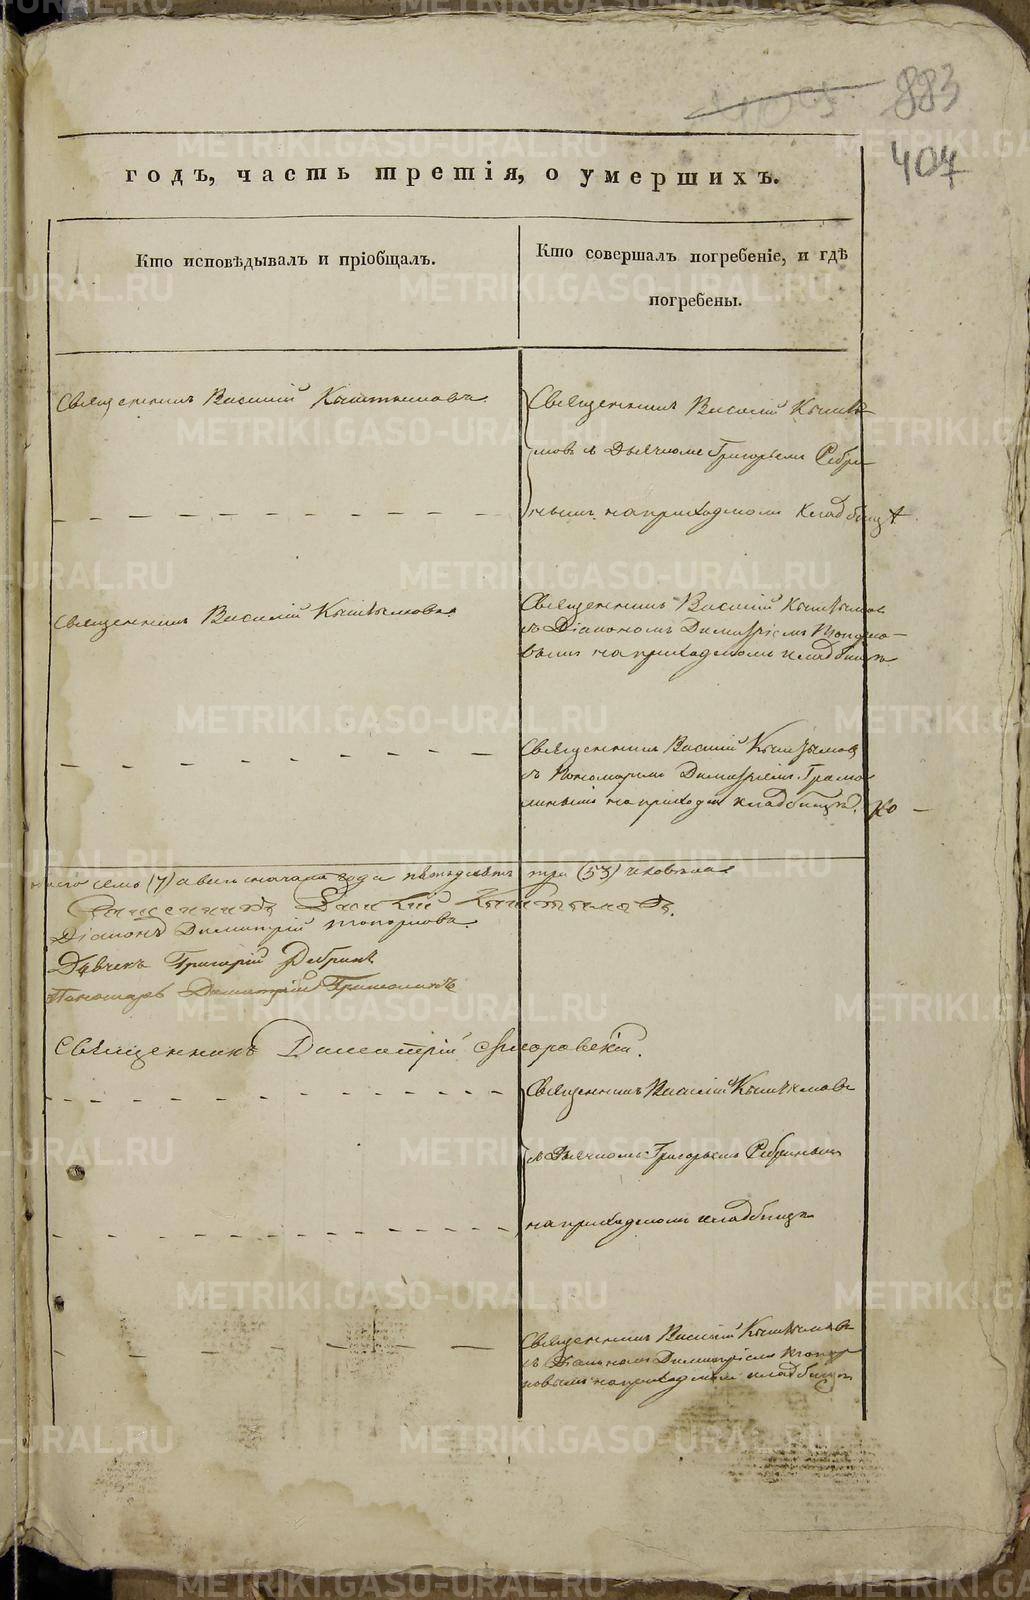 883
407
годъ, часть третія, о умершихъ.
Кто исповѣдывалъ и пріобщалъ.
Кто совершалъ погребеніе, и гдѣ
погребены.
Священникъ Василій Кыштымовъ
Священникъ Василій Кышты-
мовъ съ Дьячкомъ Григорьемъ Ребри-
нымъ на приходскомъ кладбищѣ
Священникъ Василій Кыштымовъ
Священникъ Василій Кыштымовъ
съ Діакономъ Димитріемъ Топорко-
вымъ на приходскомъ кладбищѣ
Священникъ Василій Кыштымовъ
съ Пономаремъ Димитріемъ
на приходск кладбищѣ.
семь (7) а всего съ начала года пятьдесятъ три (53) человѣка
Священникъ Василій Кыштымовъ.
Діаконъ Димитрій Топорковъ.
Дьячекъ Григорій Ребринъ
Пономарь Димитрій
Священникъ Димитрій
Священникъ Василій Кыштымовъ
съ Дьячкомъ Григорьемъ Ребринымъ
на приходскомъ кладбищѣ
Священникъ Василій Кыштымовъ
съ Діакономъ Димитріемъ Топор
ковымъ на приходскомъ кладбищѣ
METRIKI.GASO-URAL.RU